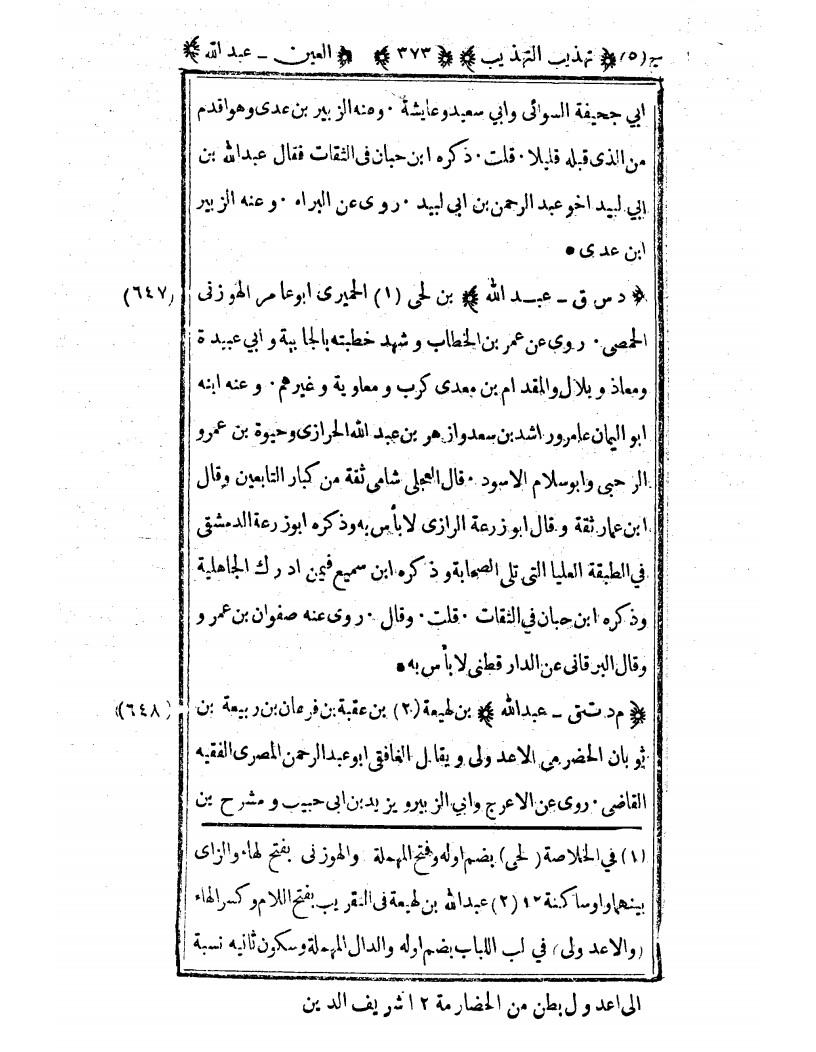 ج (٥) ﴿ تهذيب التهذيب ﴾ ﴿ ٣٧٣ ﴾ ﴿ العين ـ عبد الله ﴾
ابي جحيفة السوائى وابي سعيد وعايشة ٠ وعنه الزبير بن عدى وهو اقدم
من الذى قبله قليلا ٠ قلت ٠ ذكره ابن حبان فى الثقات فقال عبدالله بن
ابي لبيد اخو عبد الرحمن بن ابى لبيد ٠ روى عن البراء ٠ وعنه الزبير
ابن عدى •
﴿ د س ق ـ عبد الله ﴾ بن لحى (١) الحميرى ابوعامر الهوزنى (٦٤٧)
الحمصى ٠ روى عن عمر بن الخطاب وشهد خطبته بالجابية وابي عبيدة
ومعاذ وبلال والمقدام بن معدى كرب ومعاوية وغيرهم ٠ وعنه ابنه
ابو اليمان عامر وراشد بن سعد وازهر بن عبد الله الحرازى وحيوة بن عمرو
الرحبى وابو سلام الاسود ٠ قال العجلى شامى ثقة من كبار التابعين وقال
ابن عمار ثقة وقال ابو زرعة الرازى لا بأس به وذكره ابو زرعة الدمشقى
فى الطبقة العليا التى تلى الصحابة وذكره ابن سميع فيمن ادرك الجاهلية
وذكره ابن حبان في الثقات ٠ قلت ٠ وقال ٠ روى عنه صفوان بن عمرو
وقال البرقانى عن الدار قطنى لا بأس به •
﴿ م د ت ق ـ عبدالله ﴾ بن لهيعة (٢) بن عقبة بن فرعان بن ربيعة بن (٦٤٨)
ثوبان الحضرمي الاعدولى ويقال الغافقى ابو عبد الرحمن المصرى الفقيه
القاضى ٠ روى عن الاعرج وابي الزبير ويزيد بن ابى حبيب ومشرح بن
(١) في الخلاصة (لحى) بضم اوله وفتح المهملة والهوزنى بفتح لهاء والزاى
بينهما واو ساكنة ١٢ (٢) عبدالله بن لهيعة فى التقريب بفتح اللام وكسر الهاء
(والاعدولى) في لب اللباب بضم اوله والدال المهملة وسكون ثانيه نسبة
الى اعدول بطن من الحضارمة ١٢ شريف الدين